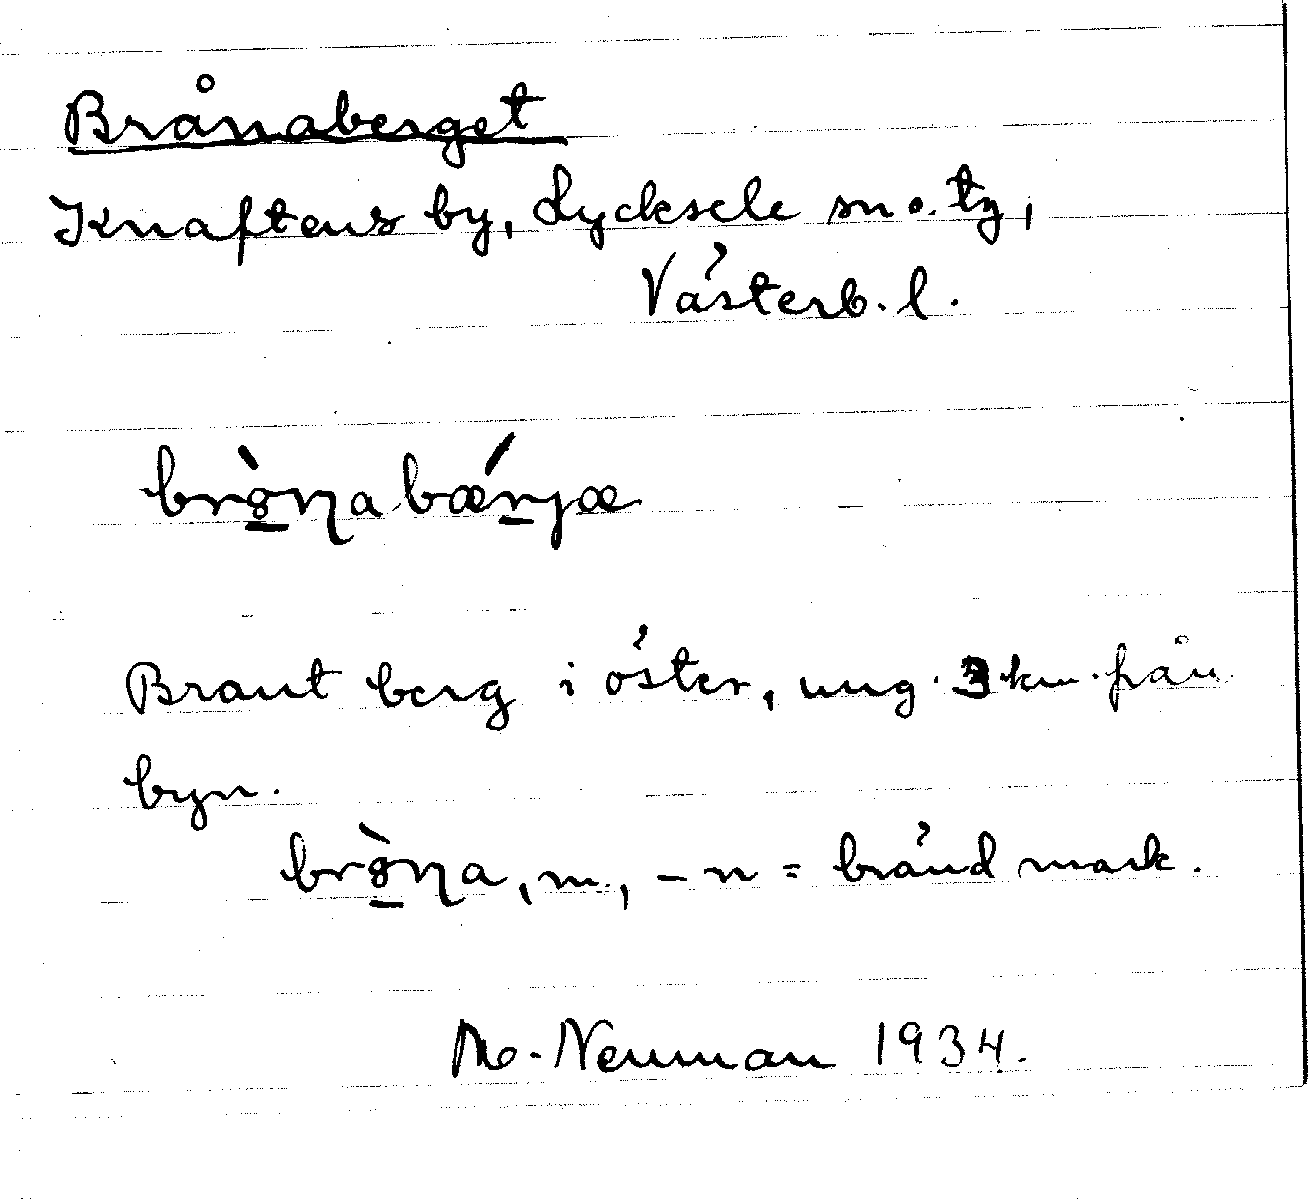 Brånaberget
Knaftens by, Lycksele sn o. tg,
Västerb. l.
brò̱ŋa bæ´ṉjæ
Brant berg i öster, ung. 3 km. från
byn.
brò̱ŋa, m., -n = bränd mark.
Mo. Neuman 1934.